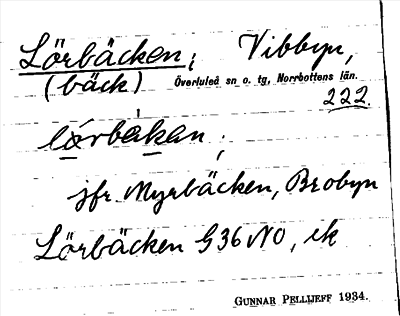 Lörbäcken; Vibbyn,
(bäck) Överluleå sn o. tg, Norrbottens län.
222.
lörbakan;
jfr Myrbäcken, Brobyn
Lörbäcken G36NO, ek
GUNNAR PELLIJEFF 1934.